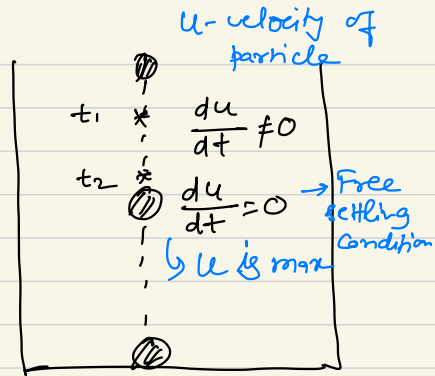 U-velocity of
particle
t₁ du/dt ≠0
t₂ du/dt =0 → Free
settling
condition
↳ u is max